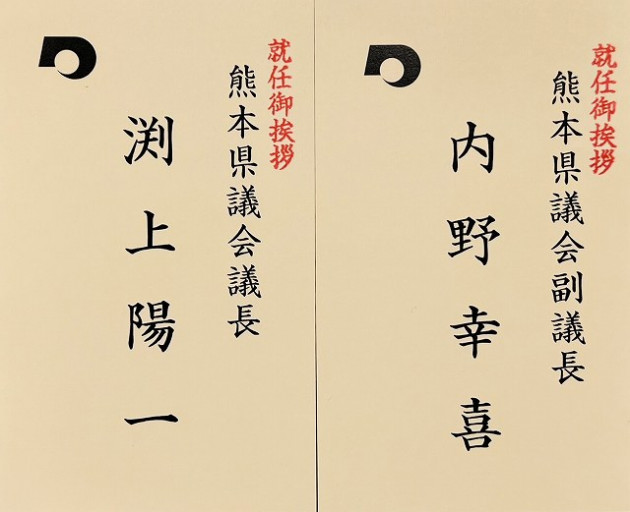 就任御挨拶
熊本県議会議長
渕上陽一
就任御挨拶
熊本県議会副議長
内野幸喜